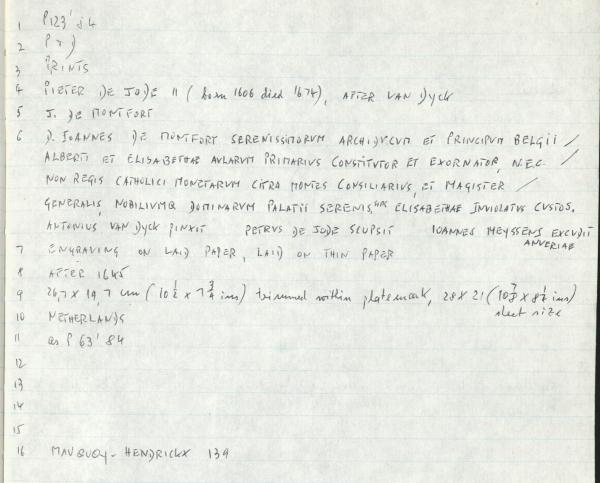 1 P123'j4
2 P x )
3 PRINTS
4 PIETER DE JODE II (born 1606 died 1674), AFTER VAN DYCK
5 J. DE MONTFORT
6 D. IOANNES DE MONTFORT SERENISSIMORVM ARCHIDVCVM ET PRINCIPVM BELGII /
ALBERTI ET ELISABETHAE AVLARVM PRIMARIVS CONSTITVTOR ET EXORNATOR, N.E.C. /
NON REGIS CATHOLICI MONETARVM CITRA MONTES CONSILIARIVS, ET MAGISTER /
GENERALIS, NOBILIVMQ DOMINARVM PALATII SERENIS, ELISABETHAE INVIOLATVS CVSTOS.
ANTONIUS VAN DYCK PINXIT PETRVS DE JODE SCVLPSIT IOANNES MEYSSENS EXCVDIT
ANVERIAE
7 ENGRAVING ON LAID PAPER, LAID ON THIN PAPER
8 AFTER 1645
9 26,7 x 19,7 cm (10 1/2 x 7 3/4 ins) trimmed within platemark, 28 x 21 (10 7/8 x 8 1/4 ins)
sheet size
10 NETHERLANDS
11 as P 63'84
12
13
14
15
16 MAUQUOY-HENDRICKX 139